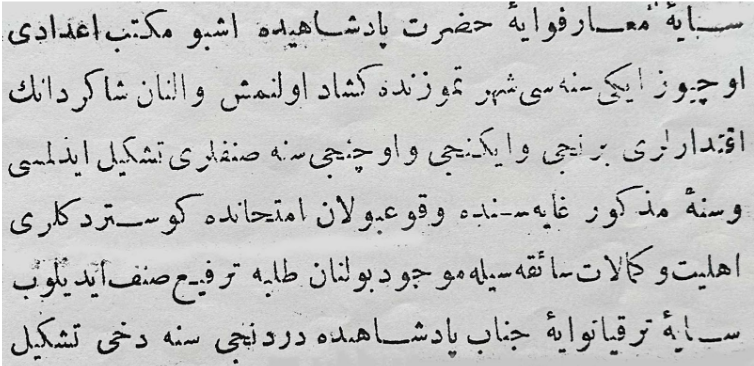 سایهٔ معارفوایهٔ حضرت پادشاهیده اشبو مکتب اعدادی
اوچیوز ایکی سنه سی شهر تموزنده کشاد اولنمش والنان شاکردانك
اقتدارلری برنجی وایکنجی واوچنجی سنه صنفلری تشکیل ایدلمسی
وسنهٔ مذکور غایه سنده وقوعبولان امتحانده کوستردکلری
اهلیت و کمالات سائقه سیله موجود بولنان طلبه ترفیع صنف ایدیلوب
سایهٔ ترقیاتوایهٔ جناب پادشاهیده دردنجی سنه دخی تشکیل